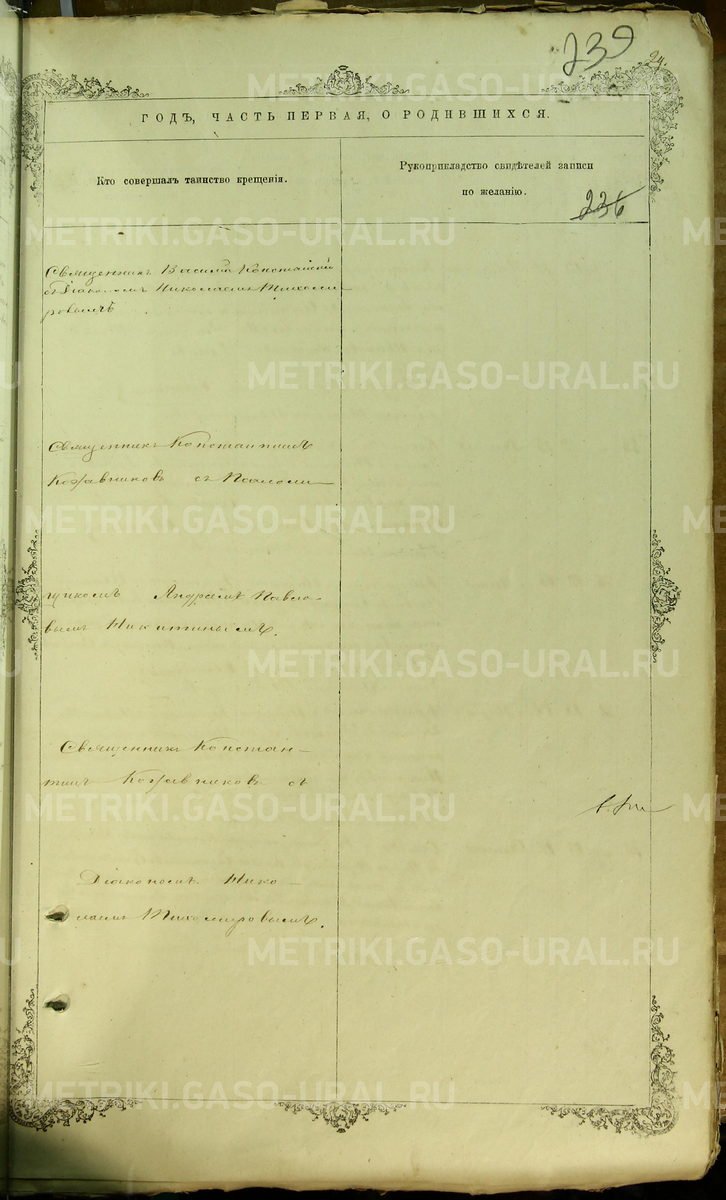 239
24.
ГОДЪ, ЧАСТЬ ПЕРВАЯ, О РОДИВШИХСЯ.
Кто совершалъ таинство крещенія.
Рукоприкладство свидѣтелей записи
по желанію.
236
Священникъ Василій
съ Діакономъ Николаемъ Тихоми-
ровымъ
Священникъ Константинъ
Кожевниковъ съ Псаломщи-
комъ Павло-
вымъ Никитинымъ.
Священникъ Констан-
тинъ Кожевниковъ съ
Діакономъ Нико-
лаемъ Тихомировымъ.
METRIKI.GASO-URAL.RU